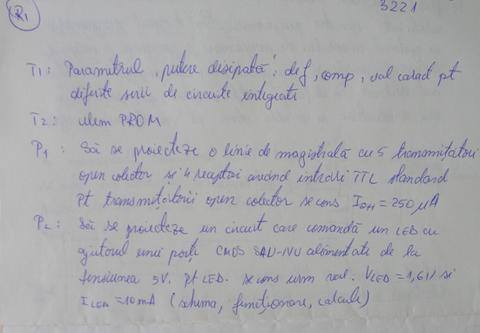 R1
3221
T1: Parametrul "putere disipată": def, comp, val caract pt
diferite serii de circuite integrate
T2: Mem PROM
P1: Să se proiecteze o linie de magistrală cu 5 transmițători
open colector și 4 receptori având intrări TTL standard
Pt transmițătorii open colector se cons IOH = 250 μA
P2: Să se proiecteze un circuit care comandă un LED cu
ajutorul unei porți CMOS SAU-NU alimentate de la
tensiunea 5V. Pt LED se cons urm val: VLED = 1,6V și
ILED = 10mA (schema, funcționare, calcule)